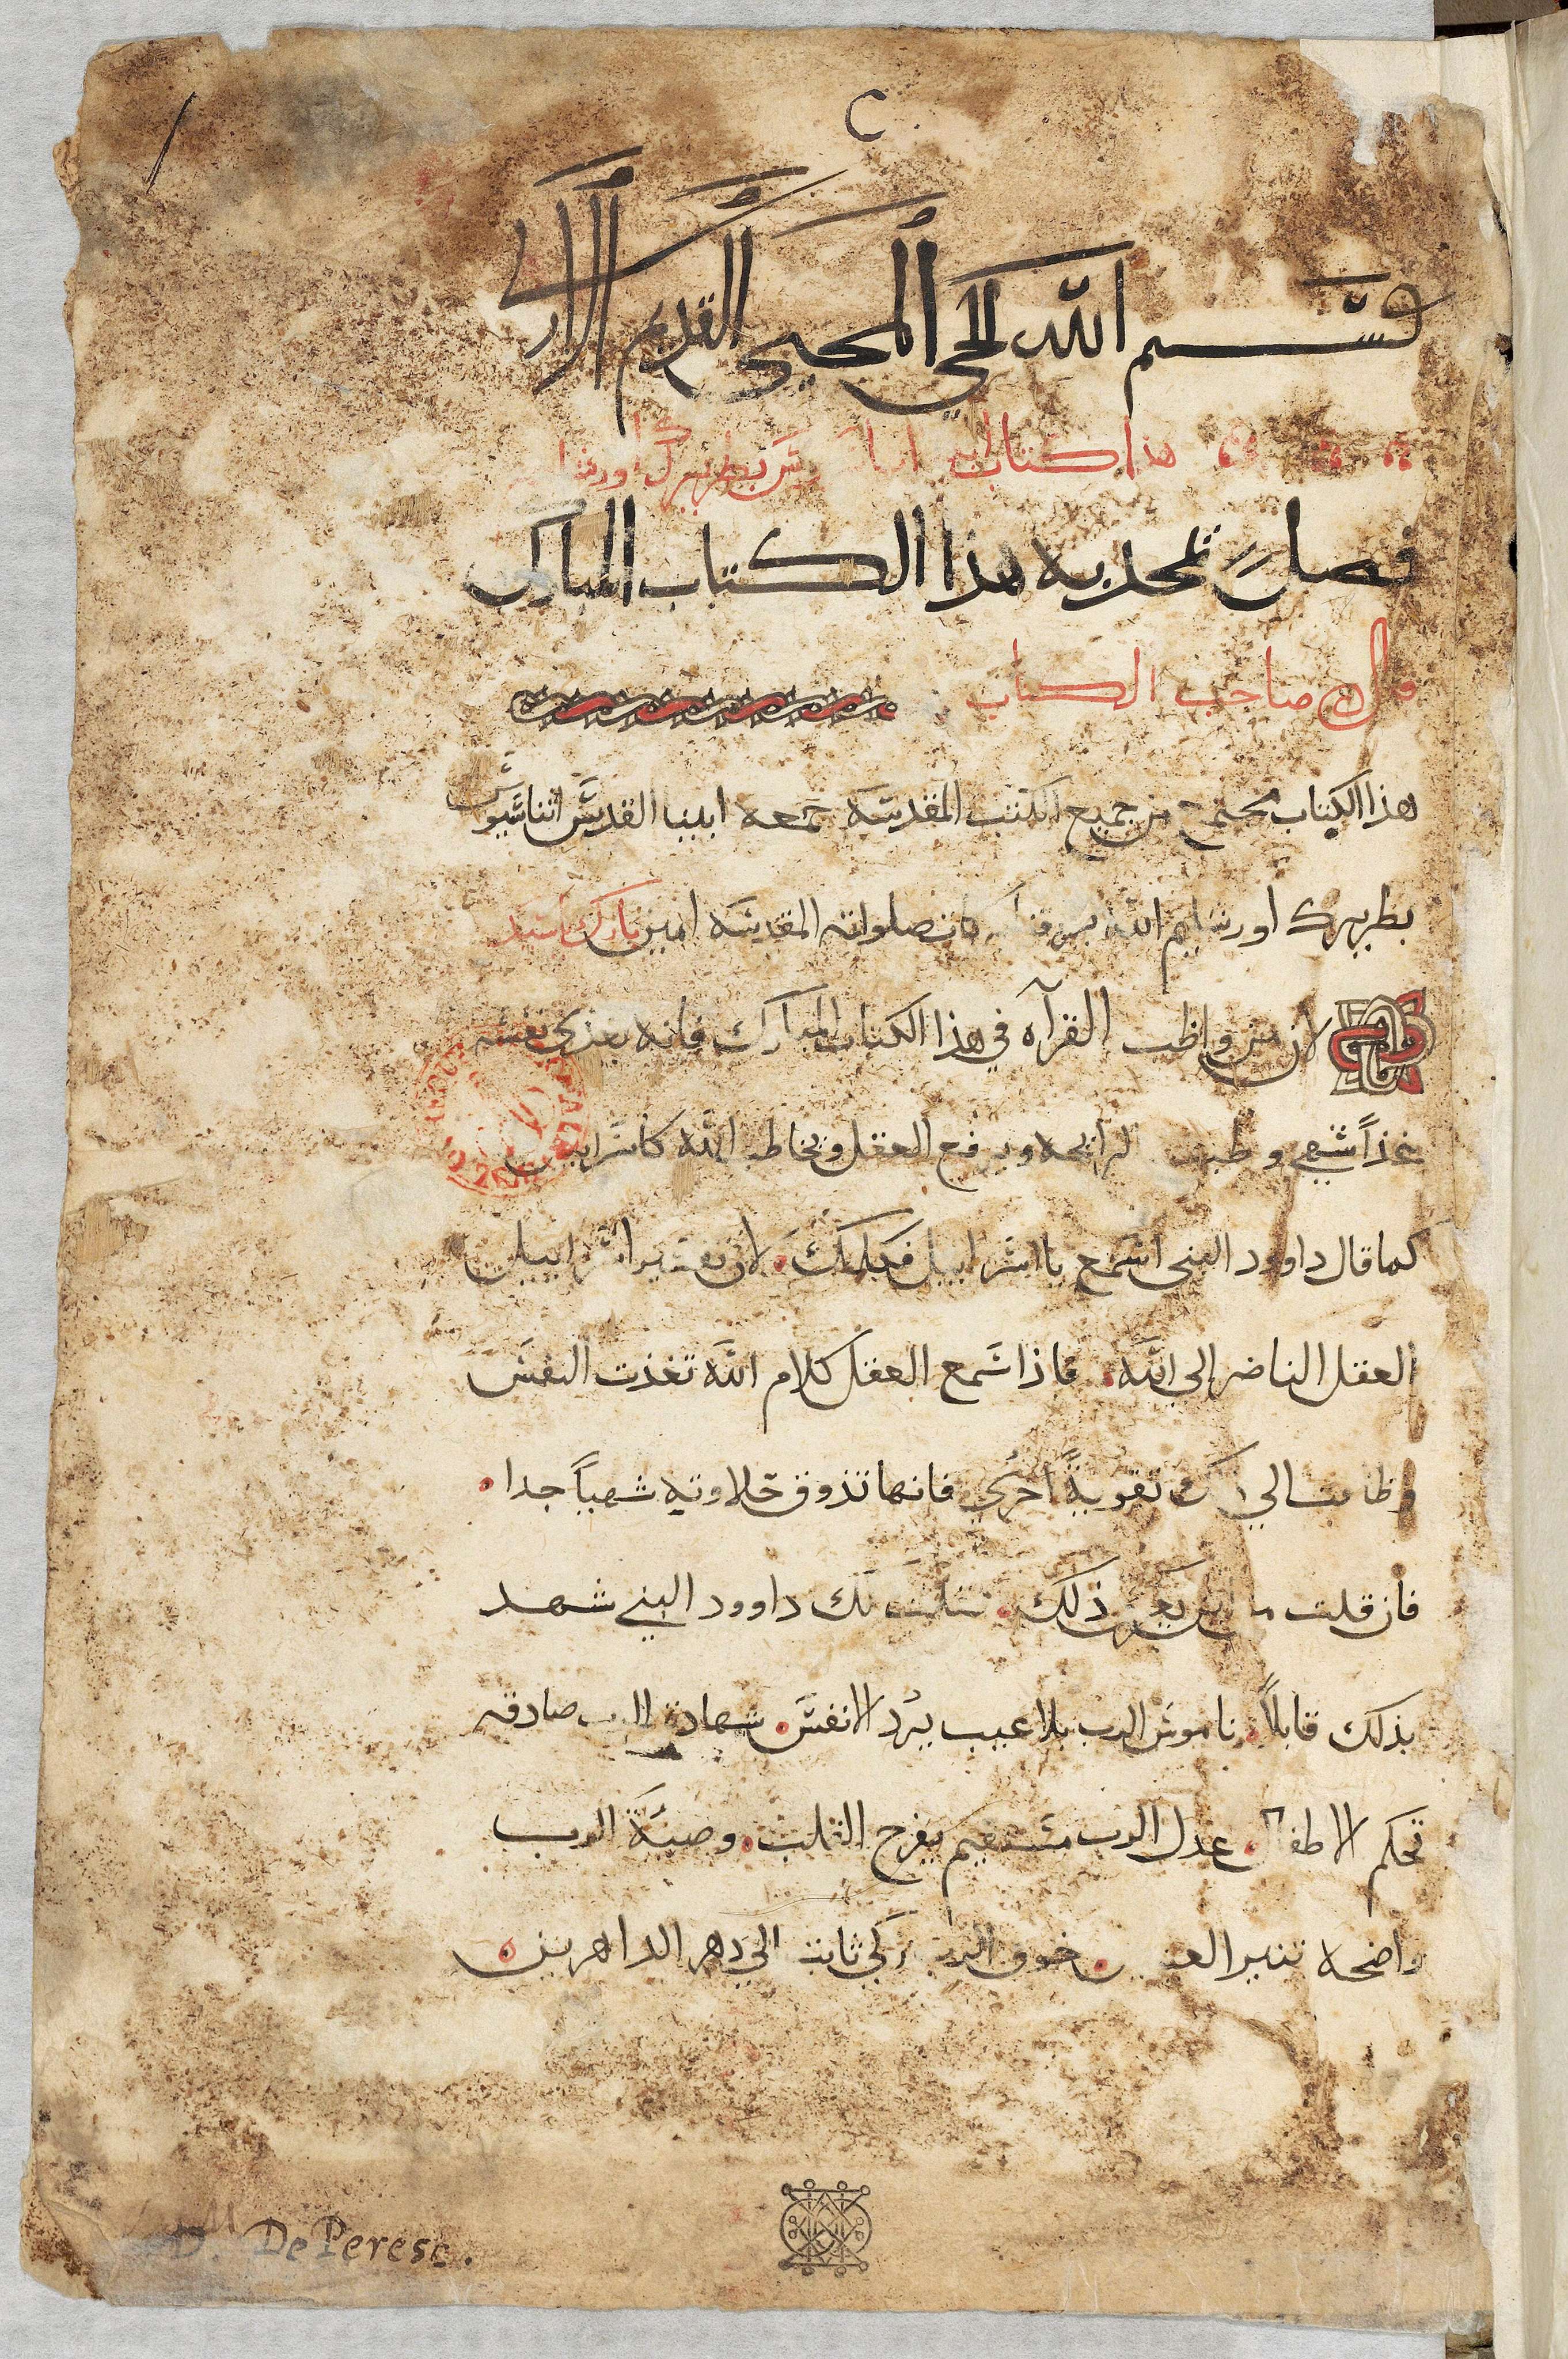 ٢
بسم الله الحي المحيي القديم الازلي
هذا كتاب بطريرك اورشا
فصل تحديه هذا الكتاب المبارك
قال صاحب الكتاب
هذا الكتاب مجتمع من جميع الكتب المقدسه جمعه ابينا القديس اثناسيوس
بطريرك اورشليم الله يرزقنا بركات صلواته المقدسه امين بارك اسيد
لان من واظب القرآه في هذا الكتاب المبارك فانه يغذي نفسه
غذاً شهي وطيب الرايحه ويرفع العقل ويخاطب الله كاسراييل
كما قال داوود النبي اسمع يا اسراييل فكلمك لان تفسير اسراييل
العقل الناضر الي الله فاذا سمع العقل كلام الله تغذت النفس
تقويةً اخري فانها تذوق حلاوته شهياً جدا
فان قلت من اين يكون ذلك لك داوود النبي شهد
بذلك قايلاً ناموس الرب بلا عيب يرد الانفس شهادة الرب صادقه
تحكم الاطفال عدل الرب مستقيم يفرح القلب وصيّة الرب
واضحه تنير العينين خوف الرب زكي ثابت الي دهر الداهرين
D. M De Peresc.